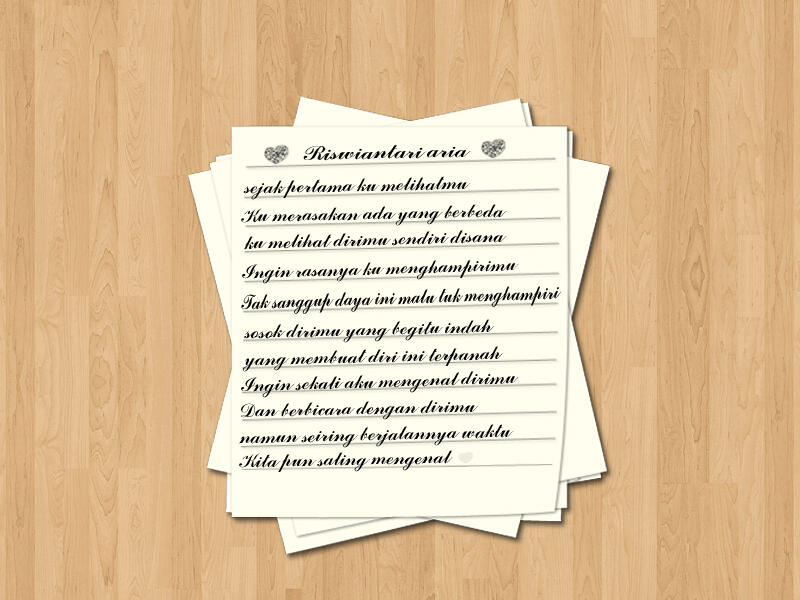 Riswiantari aria
sejak pertama ku melihatmu
Ku merasakan ada yang berbeda
ku melihat dirimu sendiri disana
Ingin rasanya ku menghampirimu
Tak sanggup daya ini malu tuk menghampiri
sosok dirimu yang begitu indah
yang membuat diri ini terpanah
Ingin sekali aku mengenal dirimu
Dan berbicara dengan dirimu
namun seiring berjalannya waktu
Kita pun saling mengenal